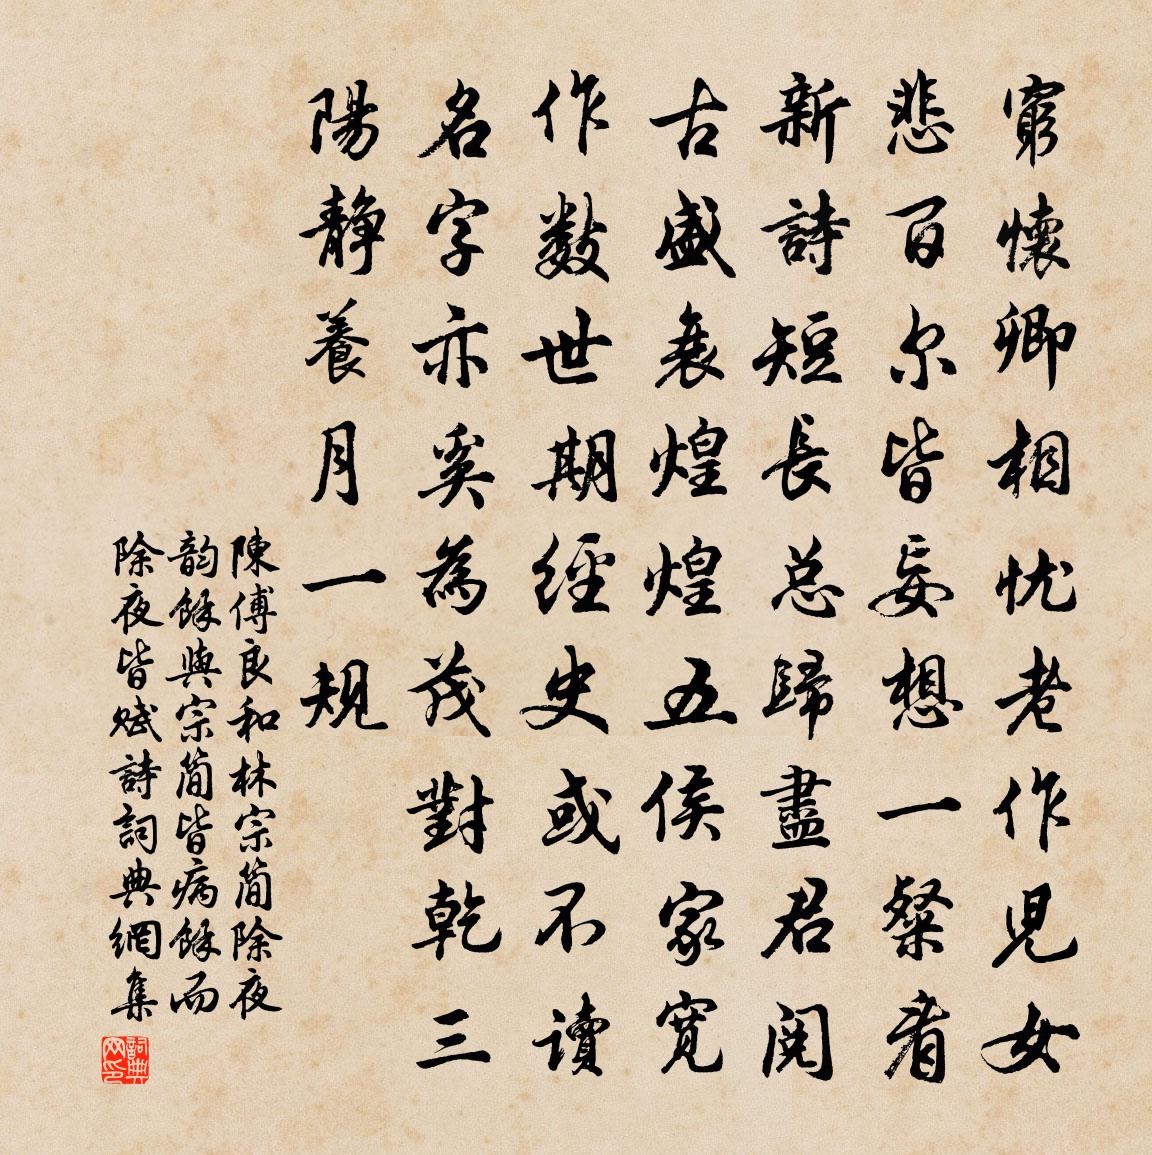 窮懷卿相忧老作兒女
悲百尔皆妄想一粲看
新詩短長总歸盡君閱
古盛衰煌煌五侯家寬
作数世期經史或不讀
名字亦奚為茂對乾三
陽静養月一規
陳傅良和林宗简除夜
韵餘與宗简皆病餘而
除夜皆赋詩詞典網集
詞典网印